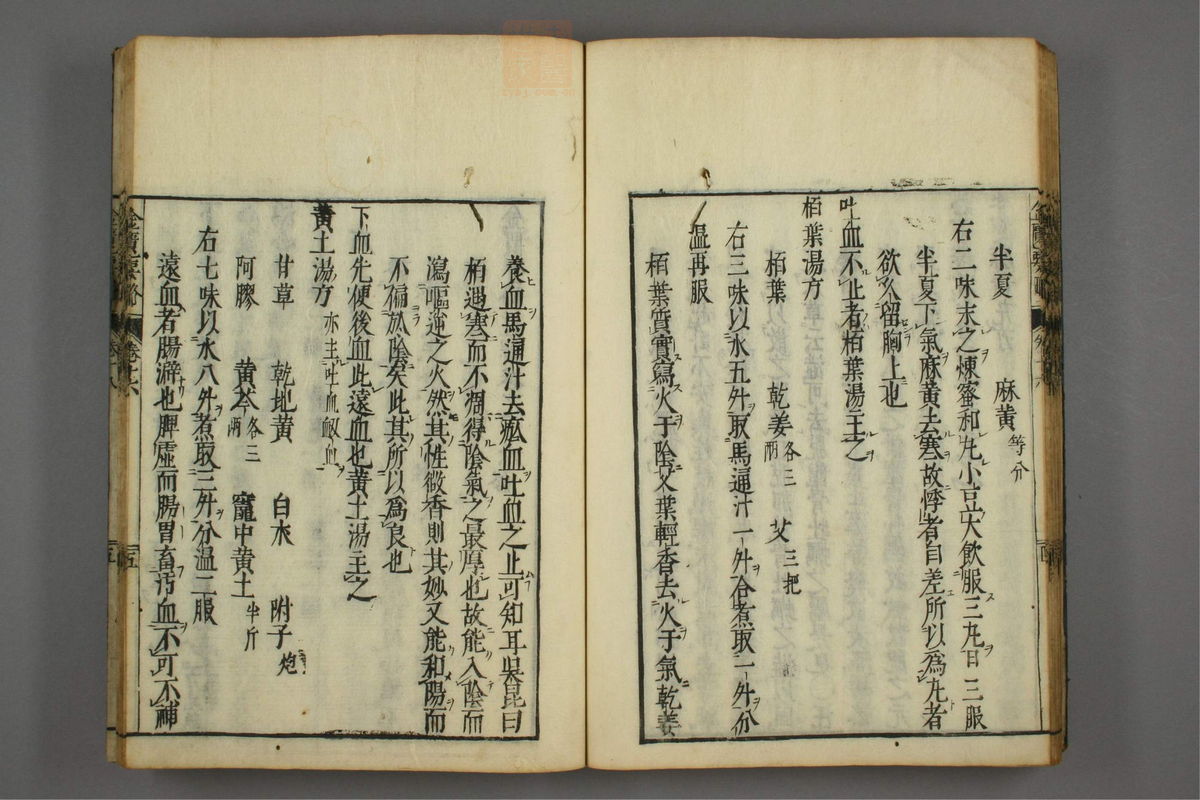 半夏　麻黄等分
右二味末之煉蜜和丸小豆大飲服三丸日三服
半夏下氣麻黄去寒故悸者自差所以爲丸者
欲久留胸上也
吐血不止者栢葉湯主之
栢葉湯方
栢葉　乾姜各三兩　艾三把
右三味以水五升取馬通汁一升合煮取一升分
温再服
栢葉質實瀉火于陰艾葉輕香去火于氣乾姜
養血馬通汁去瘀血吐血之止可知耳吳昆曰
栢遇寒而不凋得陰氣之最厚也故能入陰而
瀉嘔逆之火然其性微香則其妙又能和陽而
不偏於陰矣此其所以爲良也
下血先便後血此遠血也黄土湯主之
黄土湯方亦主吐血衂血
甘草　乾地黄　白朮　附子炮
阿膠　黄芩各三兩　竈中黄土半斤
右七味以水八升煮取三升分温二服
遠血者腸澼也脾虚而腸胃畜汚血不可不補